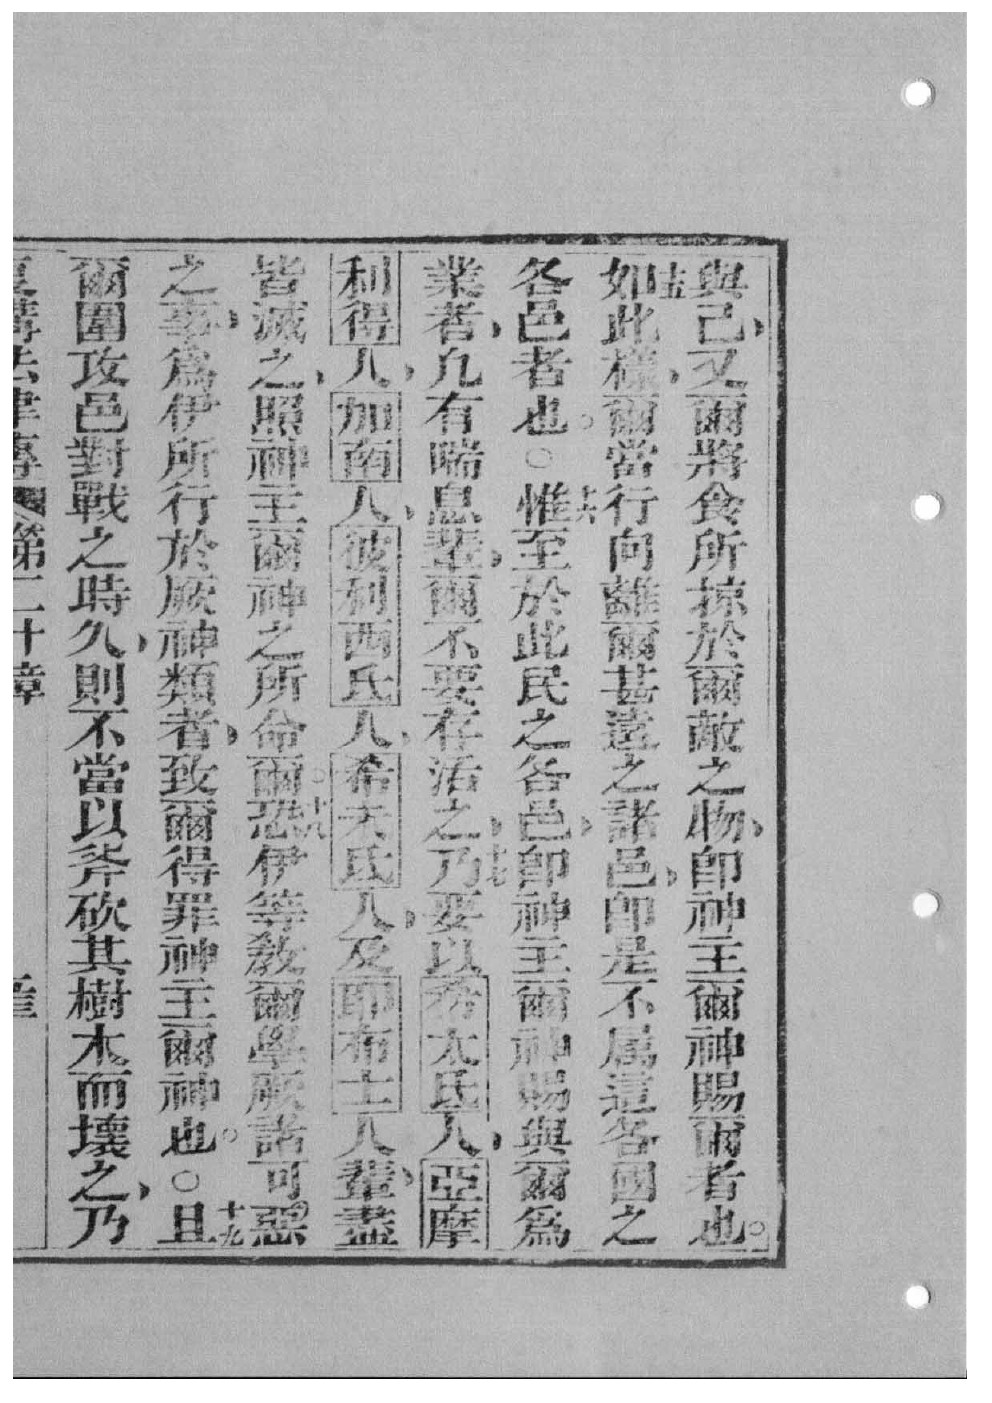 與己、又爾將食所掠於爾敵之物、即神主爾神賜爾者也。
十五如此樣、爾當行向離爾甚遠之諸邑、即是不屬這各國之
各邑者也。○十六惟至於此民之各邑、即神主爾神賜與爾爲
業者、凡有喘息輩、爾不要存活之、十七乃要以希太氏人、亞摩
利得人、加南人、彼利西氏人、希未氏人、及耶布士人輩、盡
皆滅之、照神主爾神之所命爾。十八恐伊等教爾學厥諸可惡
之事、爲伊所行於厥神類者、致爾得罪神主爾神也。○十九且
爾圍攻邑對戰之時久、則不當以斧砍其樹木而壞之、乃
復講法律傳 第二十章